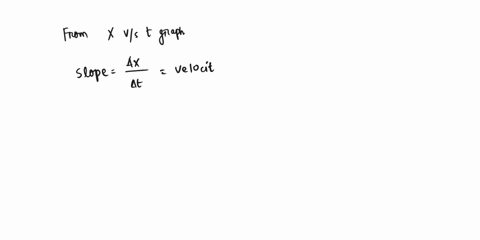 From X v/s t graph
slope = Δx/Δt = velocit